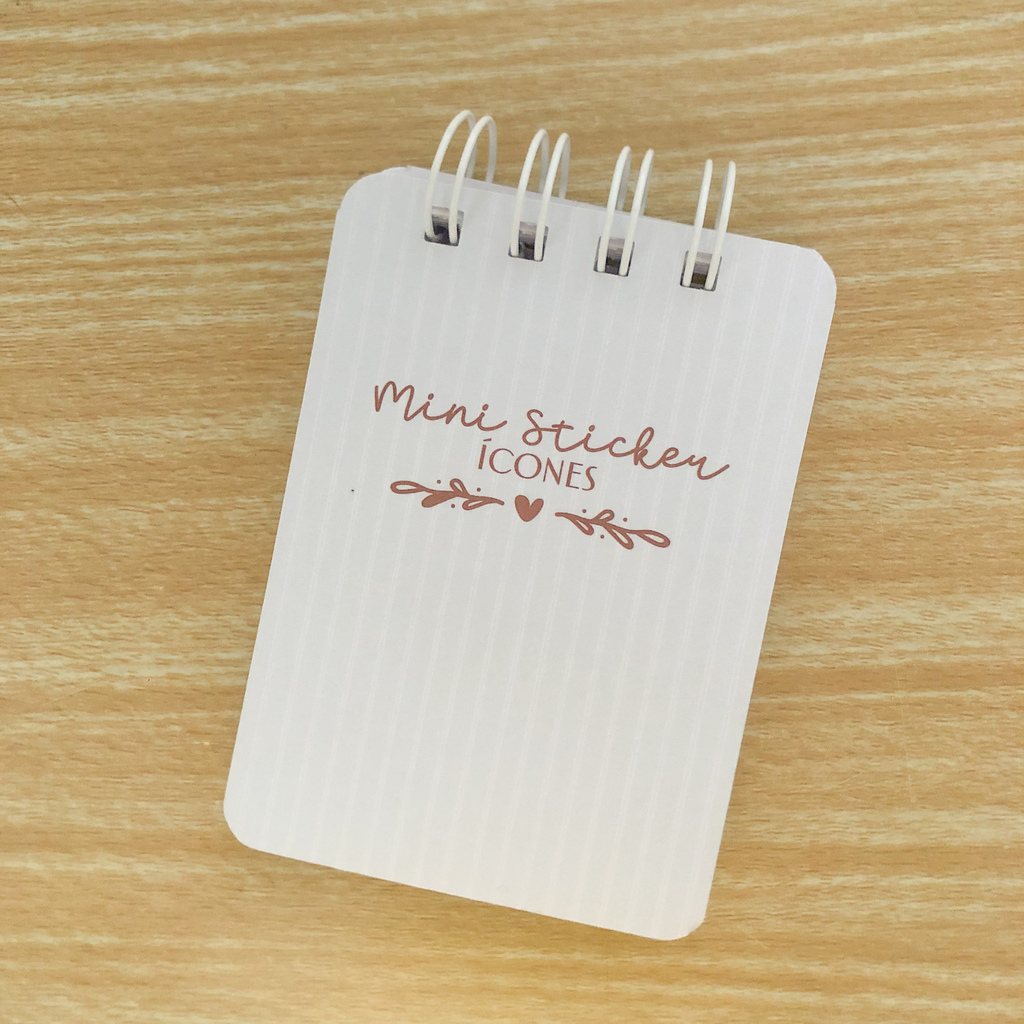 Mini Sticker
ÍCONES